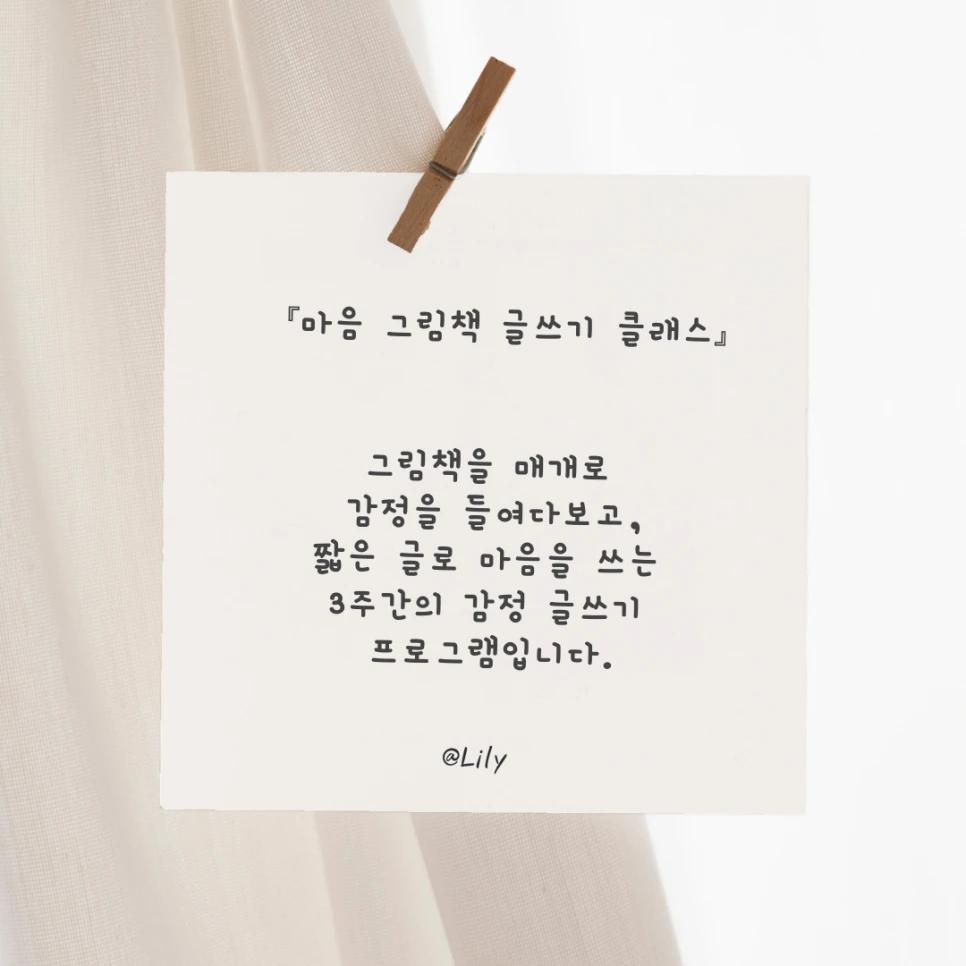 『마음 그림책 글쓰기 클래스』
그림책을 매개로
감정을 들여다보고,
짧은 글로 마음을 쓰는
3주간의 감정 글쓰기
프로그램입니다.
@Lily